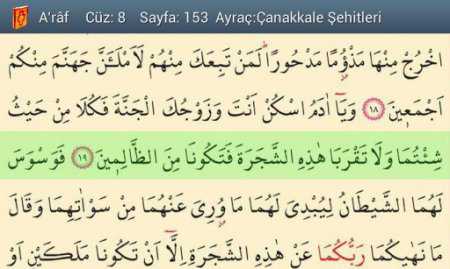 A'râf Cüz: 8 Sayfa: 153 Ayraç:Çanakkale Şehitleri
اخْرُجْ مِنْهَا مَذْؤُمًا مَدْحُورًا لَمَنْ تَبِعَكَ مِنْهُمْ لَاَمْلَـَٔنَّ جَهَنَّمَ مِنْكُمْ
اَجْمَعٖينَ ﴿١٨﴾ وَيَٓا اٰدَمُ اسْكُنْ اَنْتَ وَزَوْجُكَ الْجَنَّةَ فَكُلَا مِنْ حَيْثُ
شِئْتُمَا وَلَا تَقْرَبَا هٰذِهِ الشَّجَرَةَ فَتَكُونَا مِنَ الظَّالِمٖينَ ﴿١٩﴾ فَوَسْوَسَ
لَهُمَا الشَّيْطَانُ لِيُبْدِيَ لَهُمَا مَا وُرِيَ عَنْهُمَا مِنْ سَوْاٰتِهِمَا وَقَالَ
مَا نَهٰيكُمَا رَبُّكُمَا عَنْ هٰذِهِ الشَّجَرَةِ اِلَّٓا اَنْ تَكُونَا مَلَكَيْنِ اَوْ